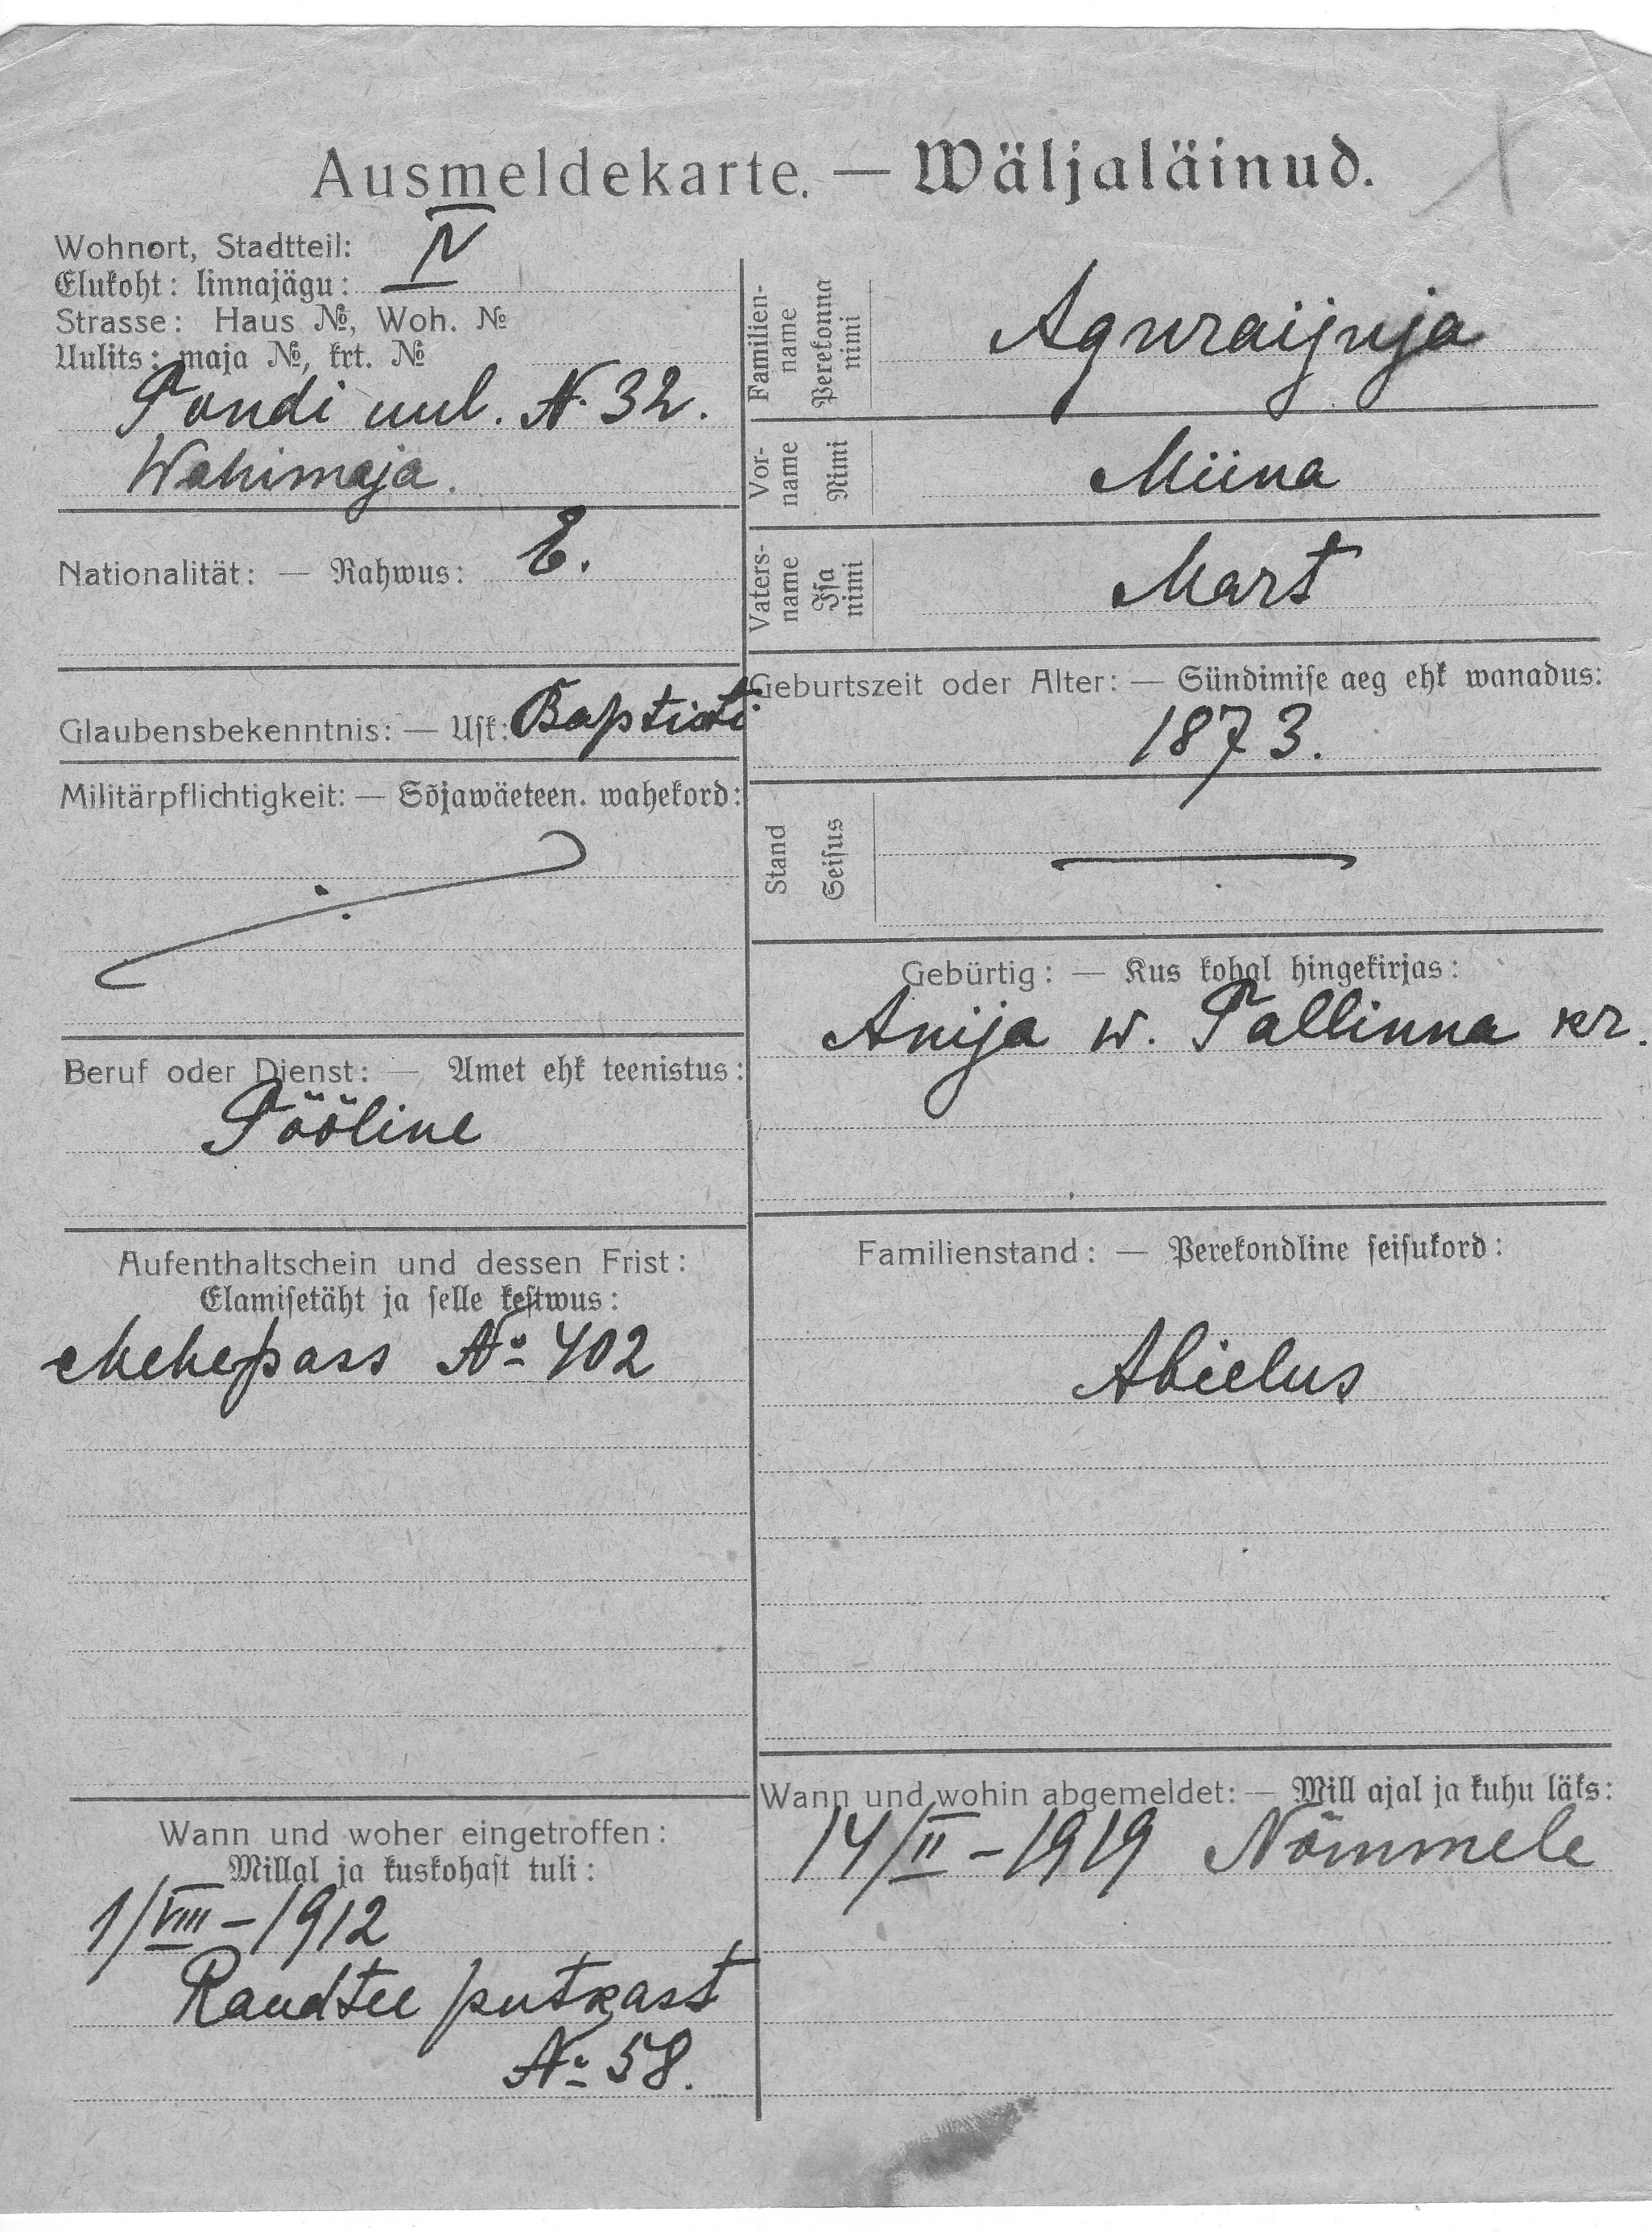 Ausmeldekarte. — Wäljaläinud.
Wohnort, Stadtteil:
Elukoht: linnajägu: IV
Strasse: Haus №, Woh. №
Uulits: maja №, krt. №
Tondi uul. N. 32.
Wahimaja.
Nationalität: — Rahwus: E.
Glaubensbekenntnis: — Usk: Baptisti
Militärpflichtigkeit: — Sõjawäeteen. wahekord:
Beruf oder Dienst: — Amet ehk teenistus:
Tööline
Aufenthaltschein und dessen Frist:
Elamisetäht ja selle kestwus:
Mehepass № 402
Wann und woher eingetroffen:
Millal ja kuskohast tuli:
1/VIII - 1912
Raudtee putkast
№ 58.
Familien-
name
Perekonna
nimi
Aguraijuja
Vor-
name
Nimi
Miina
Vaters-
name
Isa
nimi
Mart
Geburtszeit oder Alter: — Sündimise aeg ehk wanadus:
1873.
Stand
Seisus
—
Gebürtig: — Kus kohal hingekirjas:
Anija w. Tallinna kr.
Familienstand: — Perekondline seisukord:
Abielus
Wann und wohin abgemeldet: — Mill ajal ja kuhu läks:
14/II - 1919 Nõmmele